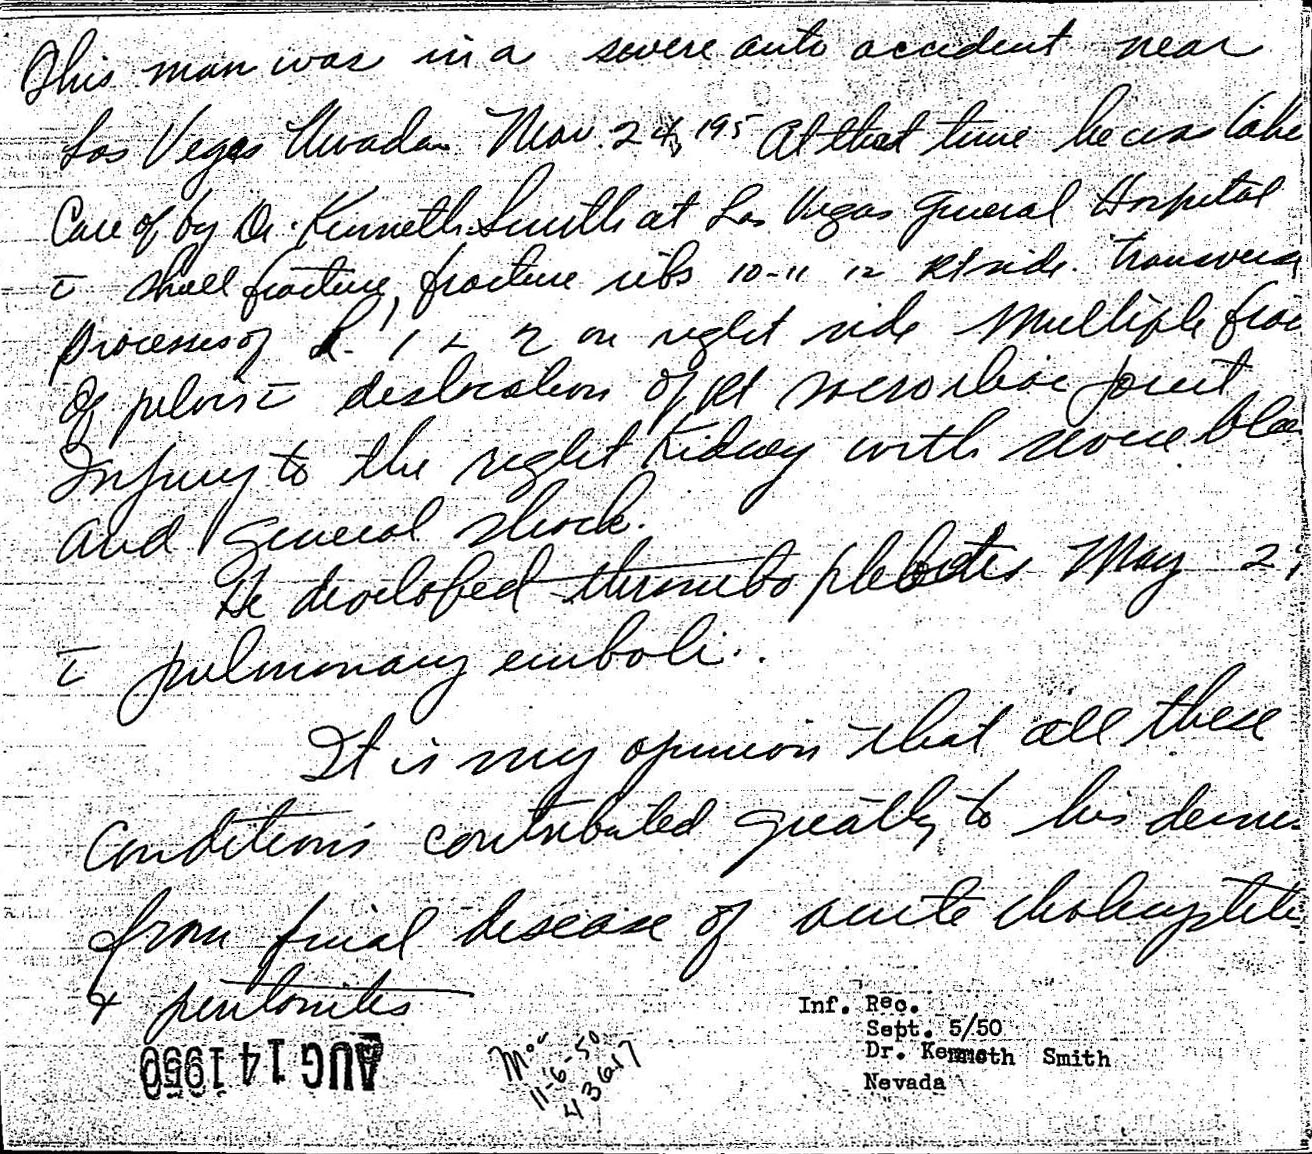 This man was in a severe auto accident near
Las Vegas Nevada Mar. 24, 195 At that time he was take
Care of by Dr. Kenneth Smith at Las Vegas General Hospital
c̄ skull fracture, fracture ribs 10-11 12 Rt side. Transvers
processes of L. 1 & 2 on right side Multiple frac
Of pelvis c̄ dislocation of Rt sacroiliac joint
Injury to the right Kidney with severe blee
and general shock.
He developed thrombo phlebitis May 2,
c̄ pulmonary emboli.
It is my opinion that all these
Conditions contributed greatly to his demi
from final disease of acute cholecystiti
& peritonitis
AUG 14 1950
11-6-50
43617
Inf. Rec.
Sept. 5/50
Dr. Kenneth Smith
Nevada